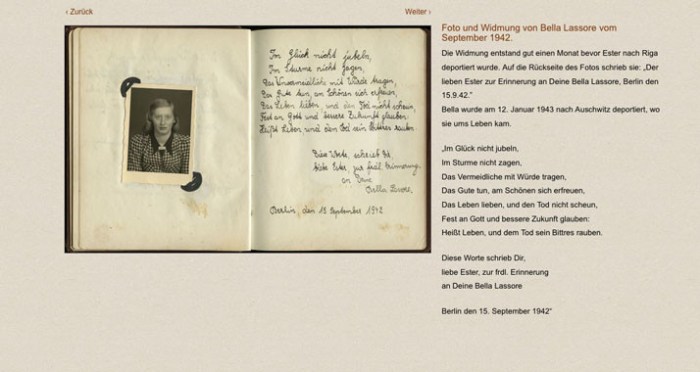 ‹ Zurück
Weiter ›
Im Glück nicht jubeln,
Im Sturme nicht zagen,
Das Unvermeidliche mit Würde tragen,
Das Gute tun, am Schönen sich erfreuen,
Das Leben lieben, und den Tod nicht scheun,
Fest an Gott und bessere Zukunft glauben:
Heißt Leben, und dem Tod sein Bitteres rauben.
Diese Worte, schrieb Dir,
liebe Ester, zur frdl. Erinnerung
an Deine
Bella Lassore.
Berlin, den 15. September 1942
Foto und Widmung von Bella Lassore vom
September 1942.
Die Widmung entstand gut einen Monat bevor Ester nach Riga
deportiert wurde. Auf die Rückseite des Fotos schrieb sie: „Der
lieben Ester zur Erinnerung an Deine Bella Lassore, Berlin den
15.9.42.“
Bella wurde am 12. Januar 1943 nach Auschwitz deportiert, wo
sie ums Leben kam.
„Im Glück nicht jubeln,
Im Sturme nicht zagen,
Das Vermeidliche mit Würde tragen,
Das Gute tun, am Schönen sich erfreuen,
Das Leben lieben, und den Tod nicht scheun,
Fest an Gott und bessere Zukunft glauben:
Heißt Leben, und dem Tod sein Bittres rauben.
Diese Worte schrieb Dir,
liebe Ester, zur frdl. Erinnerung
an Deine Bella Lassore
Berlin den 15. September 1942“